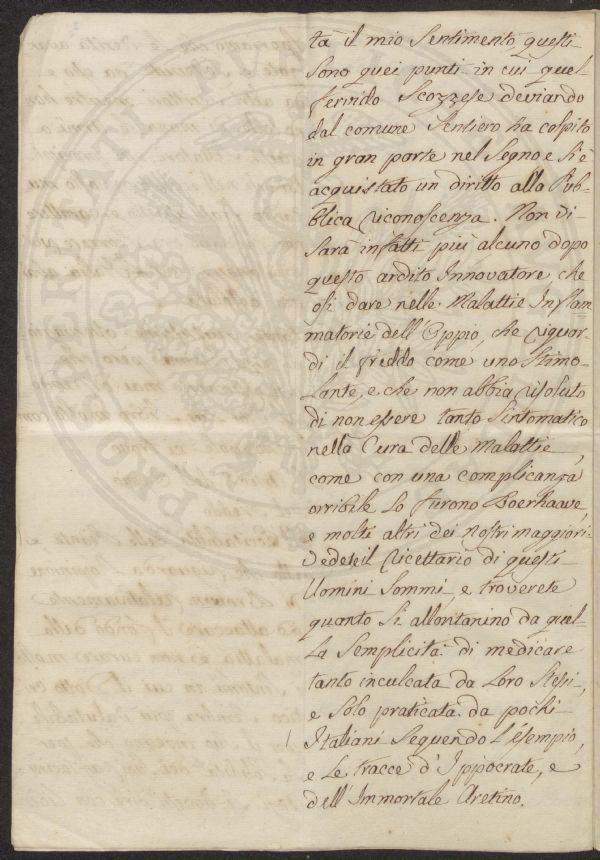 ta il mio Sentimento, questi
Sono quei punti in cui quel
fervido Scozzese deviando
dal comune Sentiero ha colpito
in gran parte nel Segno e Si è
acquistato un diritto alla Pub-
blica riconoscenza. Non vi
Sarà infatti più alcuno dopo
questo ardito Innovatore che
osi dare nelle Malattie Inflam
matorie dell'Oppio, che riguar-
di il freddo come uno Stimo-
Lante, e che non abbia risoluto
di non essere tanto Sintomatico
nella Cura delle Malattie,
come con una complicanza
orribile Lo furono Boerhaave,
e molti altri dei nostri maggiori.
Vedete il ricettario di questi
Uomini Sommi, e troverete
quanto Si allontanino da quel-
La Semplicità di medicare
tanto inculcata da Loro Stessi,
e Solo praticata da pochi
Italiani Seguendo L'esempio,
e Le tracce d'Ippocrate, e
dell'Immortale Aretino.